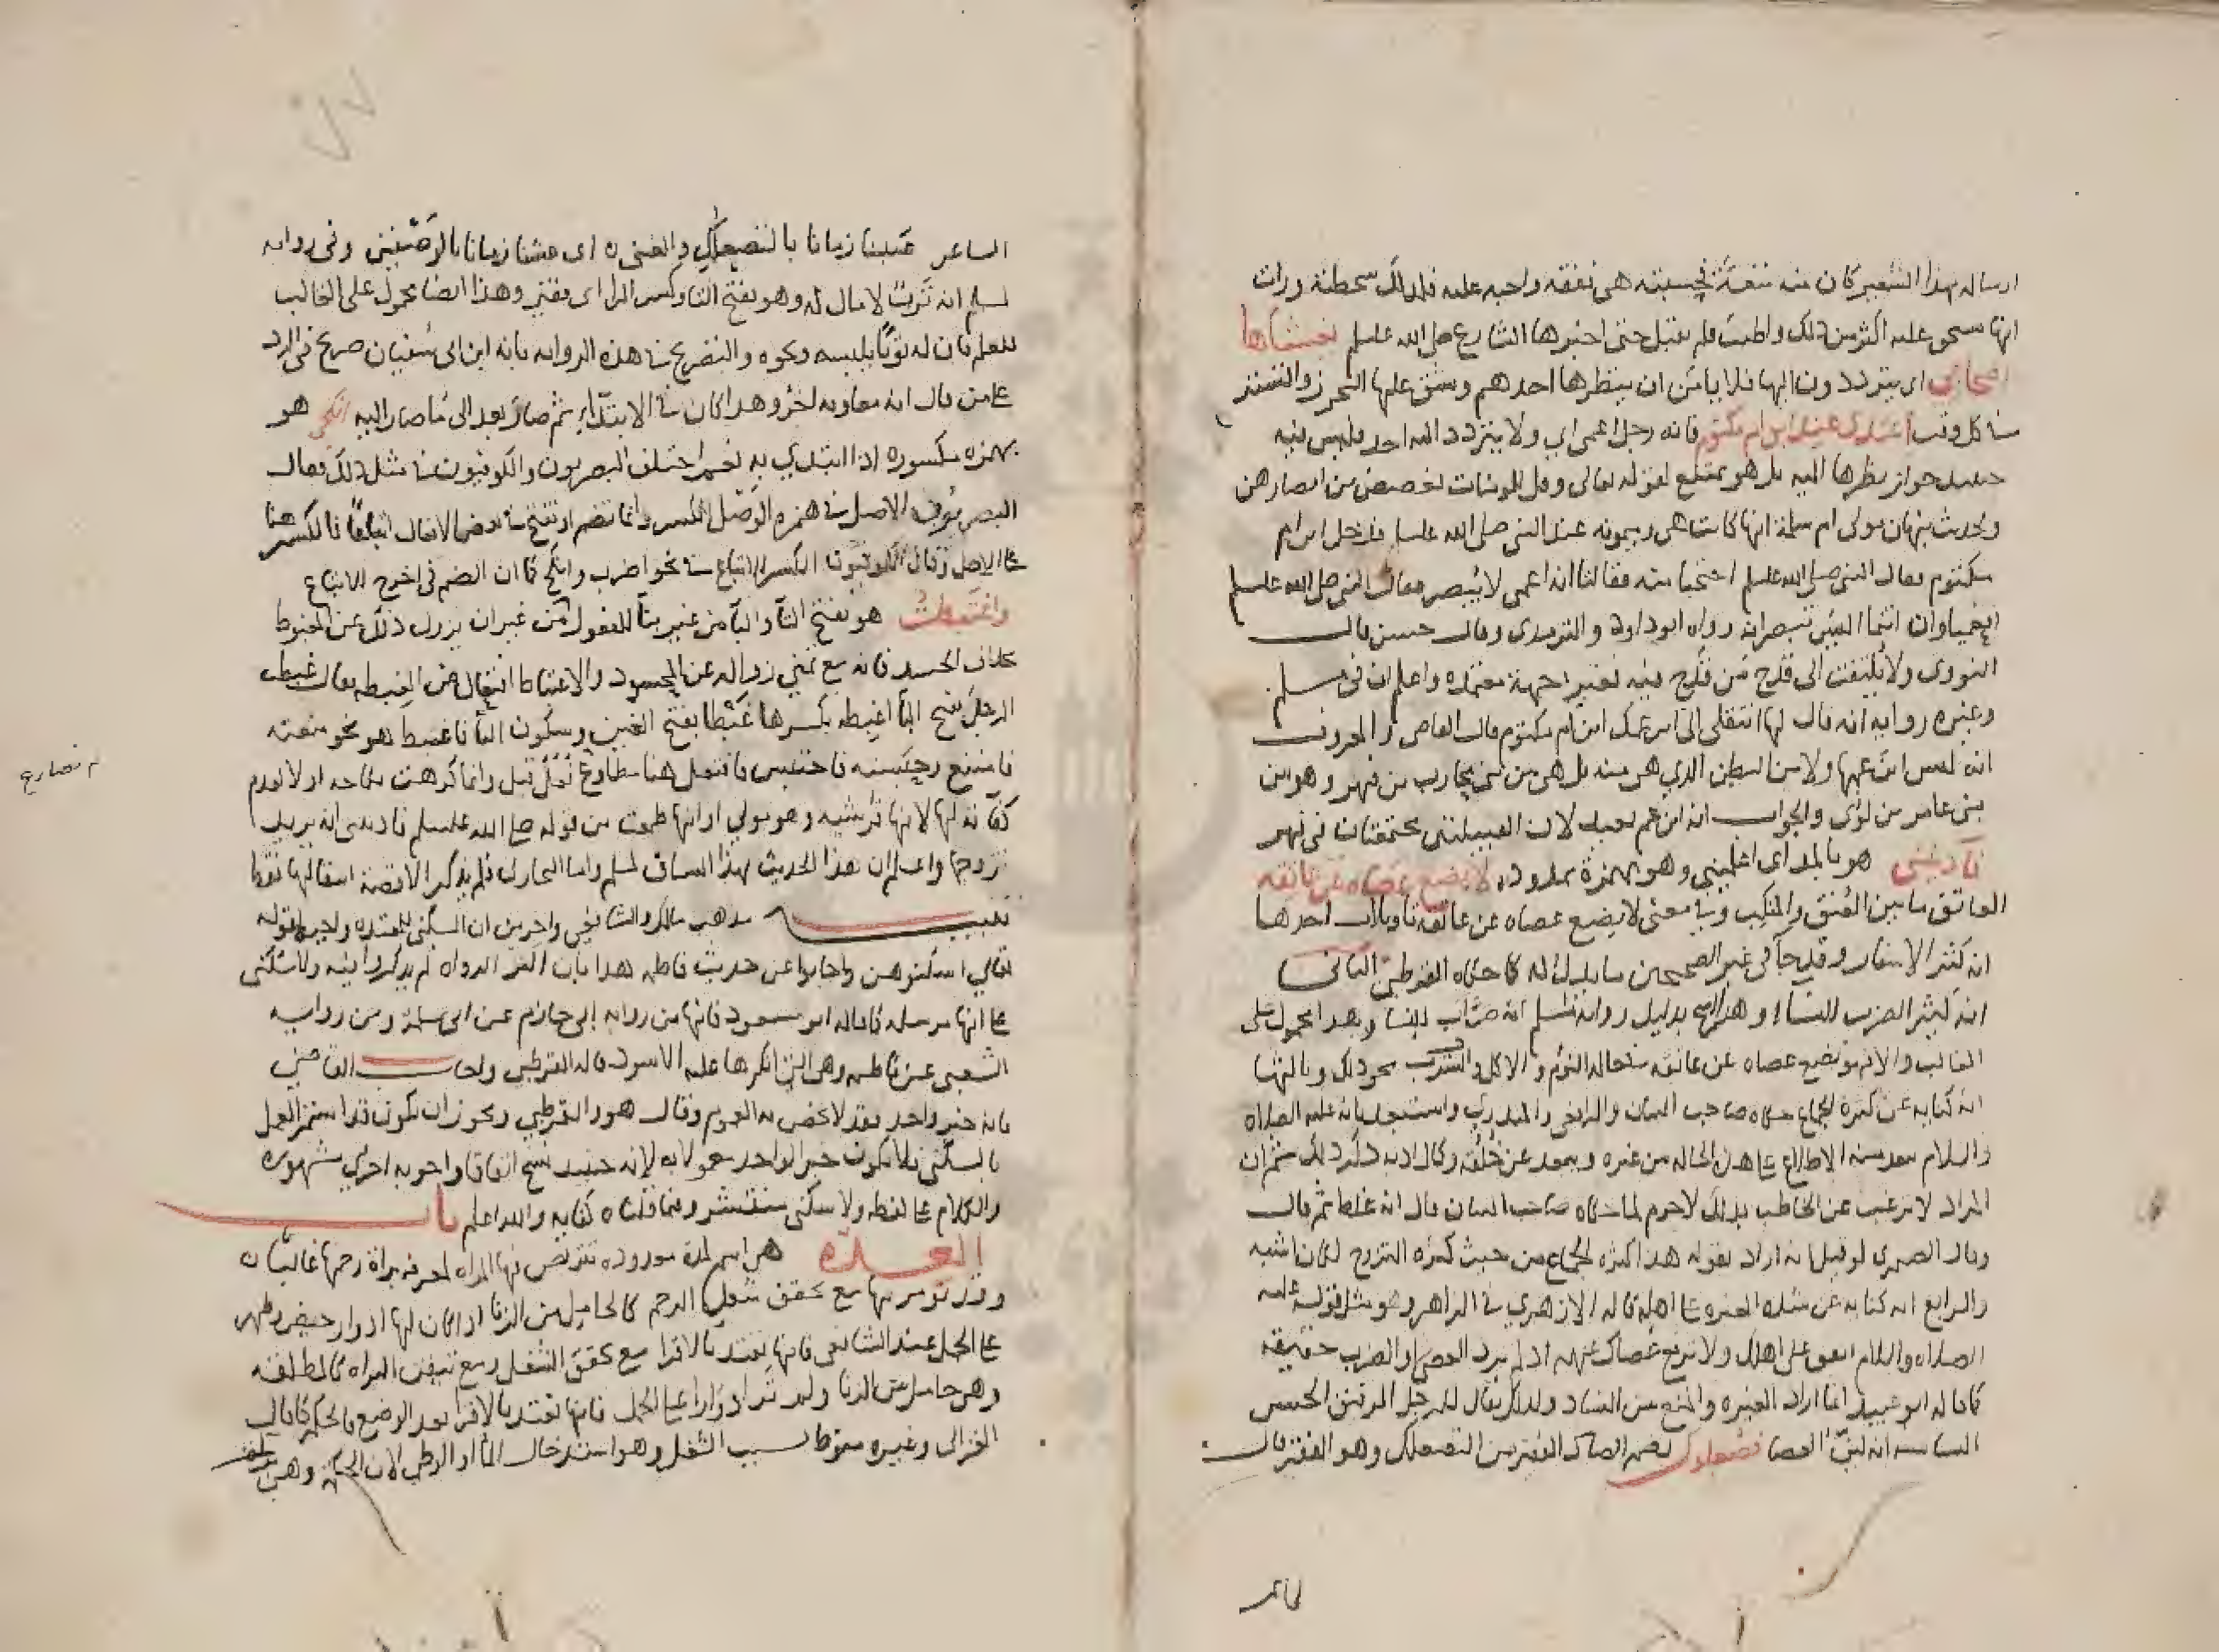 ارساله بهذا الشعير كان منه نفقة هي نفقه واجبه عليه فلذلك سخطته ورات
انها عليه اكثر من ذلك واطيب فلم يقبل حتى اخبرها الشارع صلى الله عليه وسلم يغشاها
اصحابي اي يترددون اليها فلا يامن ان ينظرها احدهم ويشق عليها التحرز والتستر
في كل وقت اعتدي عند ابن ام مكتوم فانه رجل اعمى اي ولا يتردد اليه احد وليس فيه
حينيد جواز نظرها اليه بل هو ممتنع لقوله تعالى وقل للمومنات يغضضن من ابصارهن
ولحديث نبهان مولى ام سلمة انها كانت هي وميمونه عند النبي صلى الله عليه وسلم فدخل ابن ام
مكتوم فقال النبي صلى الله عليه وسلم احتجبا منه فقالتا انه اعمى لا يبصر فقال النبي صلى الله عليه وسلم
افعمياوان انتما اليس تبصرانه رواه ابو داود والترمدي وقال حسن قال
النووي ولا يلتفت الى قدح من قدح فيه بغير حجة معتمده واعلم ان في مسلم
وغيره روايه انه قال لها انتقلي الى ابن عمك ابن ام مكتوم قال القاضي والمعروف
انه ليس ابن عمها ولا من البطن الذي هي منه بل هي من بني محارب بن فهر وهو من
بني عامر بن لؤي والجواب انه ابن عم بعيد لان القبيلتين مجتمعتان في فهر
فآذنيني هو بالمد اي اعلميني وهو بهمزة ممدوده لا يضع عصاه عن عاتقه
العاتق ما بين العنق والمنكب وفي معنى لا يضع عصاه عن عاتقه تاويلات احدها
انه كثير الاسفار وقد جآ في غير الصحيحين ما يدل له كما حكاه القرطبي الثاني
انه كثير الضرب للنساء وهذا اصح بدليل رواية لمسلم انه ضراب للنسا وهذا محمول على
الغالب والا فهو يضع عصاه عن عاتقه في حاله النوم والاكل والشرب ونحو ذلك وثالثها
انه كنايه عن كثره الجماع حكاه صاحب البيان والرافعي والمنذري واستبعد بانه عليه الصلاه
والسلام يبعد منه الاطلاع على هذه الحاله من غيره ويبعد عن خلقه وكمال ادبه ذكر ذلك ثم ان
المراد لا ترغب عن الخاطب بذلك لا جرم لما حكاه صاحب البيان قال انه غلط ثم قال
وقال الصيمري لو قيل انه اراد بقوله هذا كثره الجماع من حيث كثره التزوج لكان اشبه
والرابع انه كنايه عن شده الغيره على اهله قاله الازهري في الزاهر وهو مثل قوله عليه
الصلاه والسلام انفق على اهلك ولا ترفع عصاك عنهم اذ لم يرد العصا والضرب حقيقه
كما قاله ابو عبيد انما اراد الغيره والمنع من الفساد ولذلك يقال للرجل الرفيق الحسن
السياسه انه لين العصا فصعلوك بضم الصاد الفقير من التصعلك وهو الفقر قال
الشاعر غنينا زمانا بالتصعلك والغنى ه اي عشنا زمانا بالوصفين وفي روايه
لمسلم انه ترب لا مال له وهو بفتح التا وكسر الرا اي فقير وهذا ايضا محمول على الغالب
للعلم بان له ثوبا يلبسه ونحوه والتصريح في هذه الروايه بانه ابن ابي سفيان صريح في الرد
على من قال انه معاويه اخر وهذا كان في الابتداء ثم صار بعد الى ما صار اليه انكحي هو
بهمزه مكسوره اذا ابتدي به اختلف البصريون والكوفيون في مثل ذلك فقال
البصريون الاصل في همزه الوصل الكسر وانما تضم او تفتح في بعض الافعال اتباعا فالكسر هنا
على الاصل وقال الكوفيون الكسر للاتباع في نحو اضرب وانكح كما ان الضم في اخرج للاتباع
واغتبطت هو بفتح التآ والبآ من غير بنآ للمفعول من غير ان يزول ذلك عن المغبوط
بخلاف الحسد فانه مع تمني زواله عن المحسود والاغتباط افتعال من الغبطه يقال غبطت
الرجل بفتح البآ اغبطه بكسرها غبطا بفتح الغين وسكون البآ فاغتبط هو نحو منعته
فامتنع وحبسته فاحتبس فافتعل هنا مطاوع فعل قبل وانما كرهت نكاحه اولا لعدم
كفآته لها لانها قرشيه وهو مولى او انها ظنت من قوله صلى الله عليه وسلم فآذنيني انه يريد
زوجها واعلم ان هذا الحديث بهذا السياق لمسلم واما البخاري فلم يذكر الا قصة انتقالها فقط
تنبيه مذهب مالك والشافعي واخرين ان السكنى للمعتده واجبه لقوله
تعالى اسكنوهن واجابوا عن حديث فاطمه هذا بان اكثر الرواه لم يذكروا فيه ولا سكنى
على انها مرسله كما قاله ابو مسعود فانها من روايه ابي حازم عن ابي سلمة ومن روايه
الشعبي عن فاطمه وهي التي انكرها عليه الاسود قاله القرطبي واجاب القاضي
بانه خبر واحد فقد لا يخص به العموم وقال هو والقرطبي ويجوز ان يكون قد استمر العمل
بالسكنى فلا يكون خبر الواحد معمولا به لانه حينيد نسخ اتفاقا واجوبه اخرى مشهوره
والكلام على لفظه ولا سكنى منتشر وفيما قلناه كفايه والله اعلم باب
العده هي اسم لمدة معدوده تتربص فيها المراه لمعرفه براة رحمها غالبا ه
وقد تومر بها مع تحقق شغل الرحم كالحامل من الزنا اذا كان لها ادوار حيض وطهر
على الحمل عند الشافعي فانها تعتد بالاقرا مع تحقق الشغل ومع تيقن البراه كالمطلقه
وهي حامل من الزنا ولم تر ادوارا على الحمل فانها تعتد بالاقرا بعد الوضع فالحكم كما قال
الغزالي وغيره منوط بسبب الشغل وهو استدخال المآ او الوطي لان الحكمه وهي